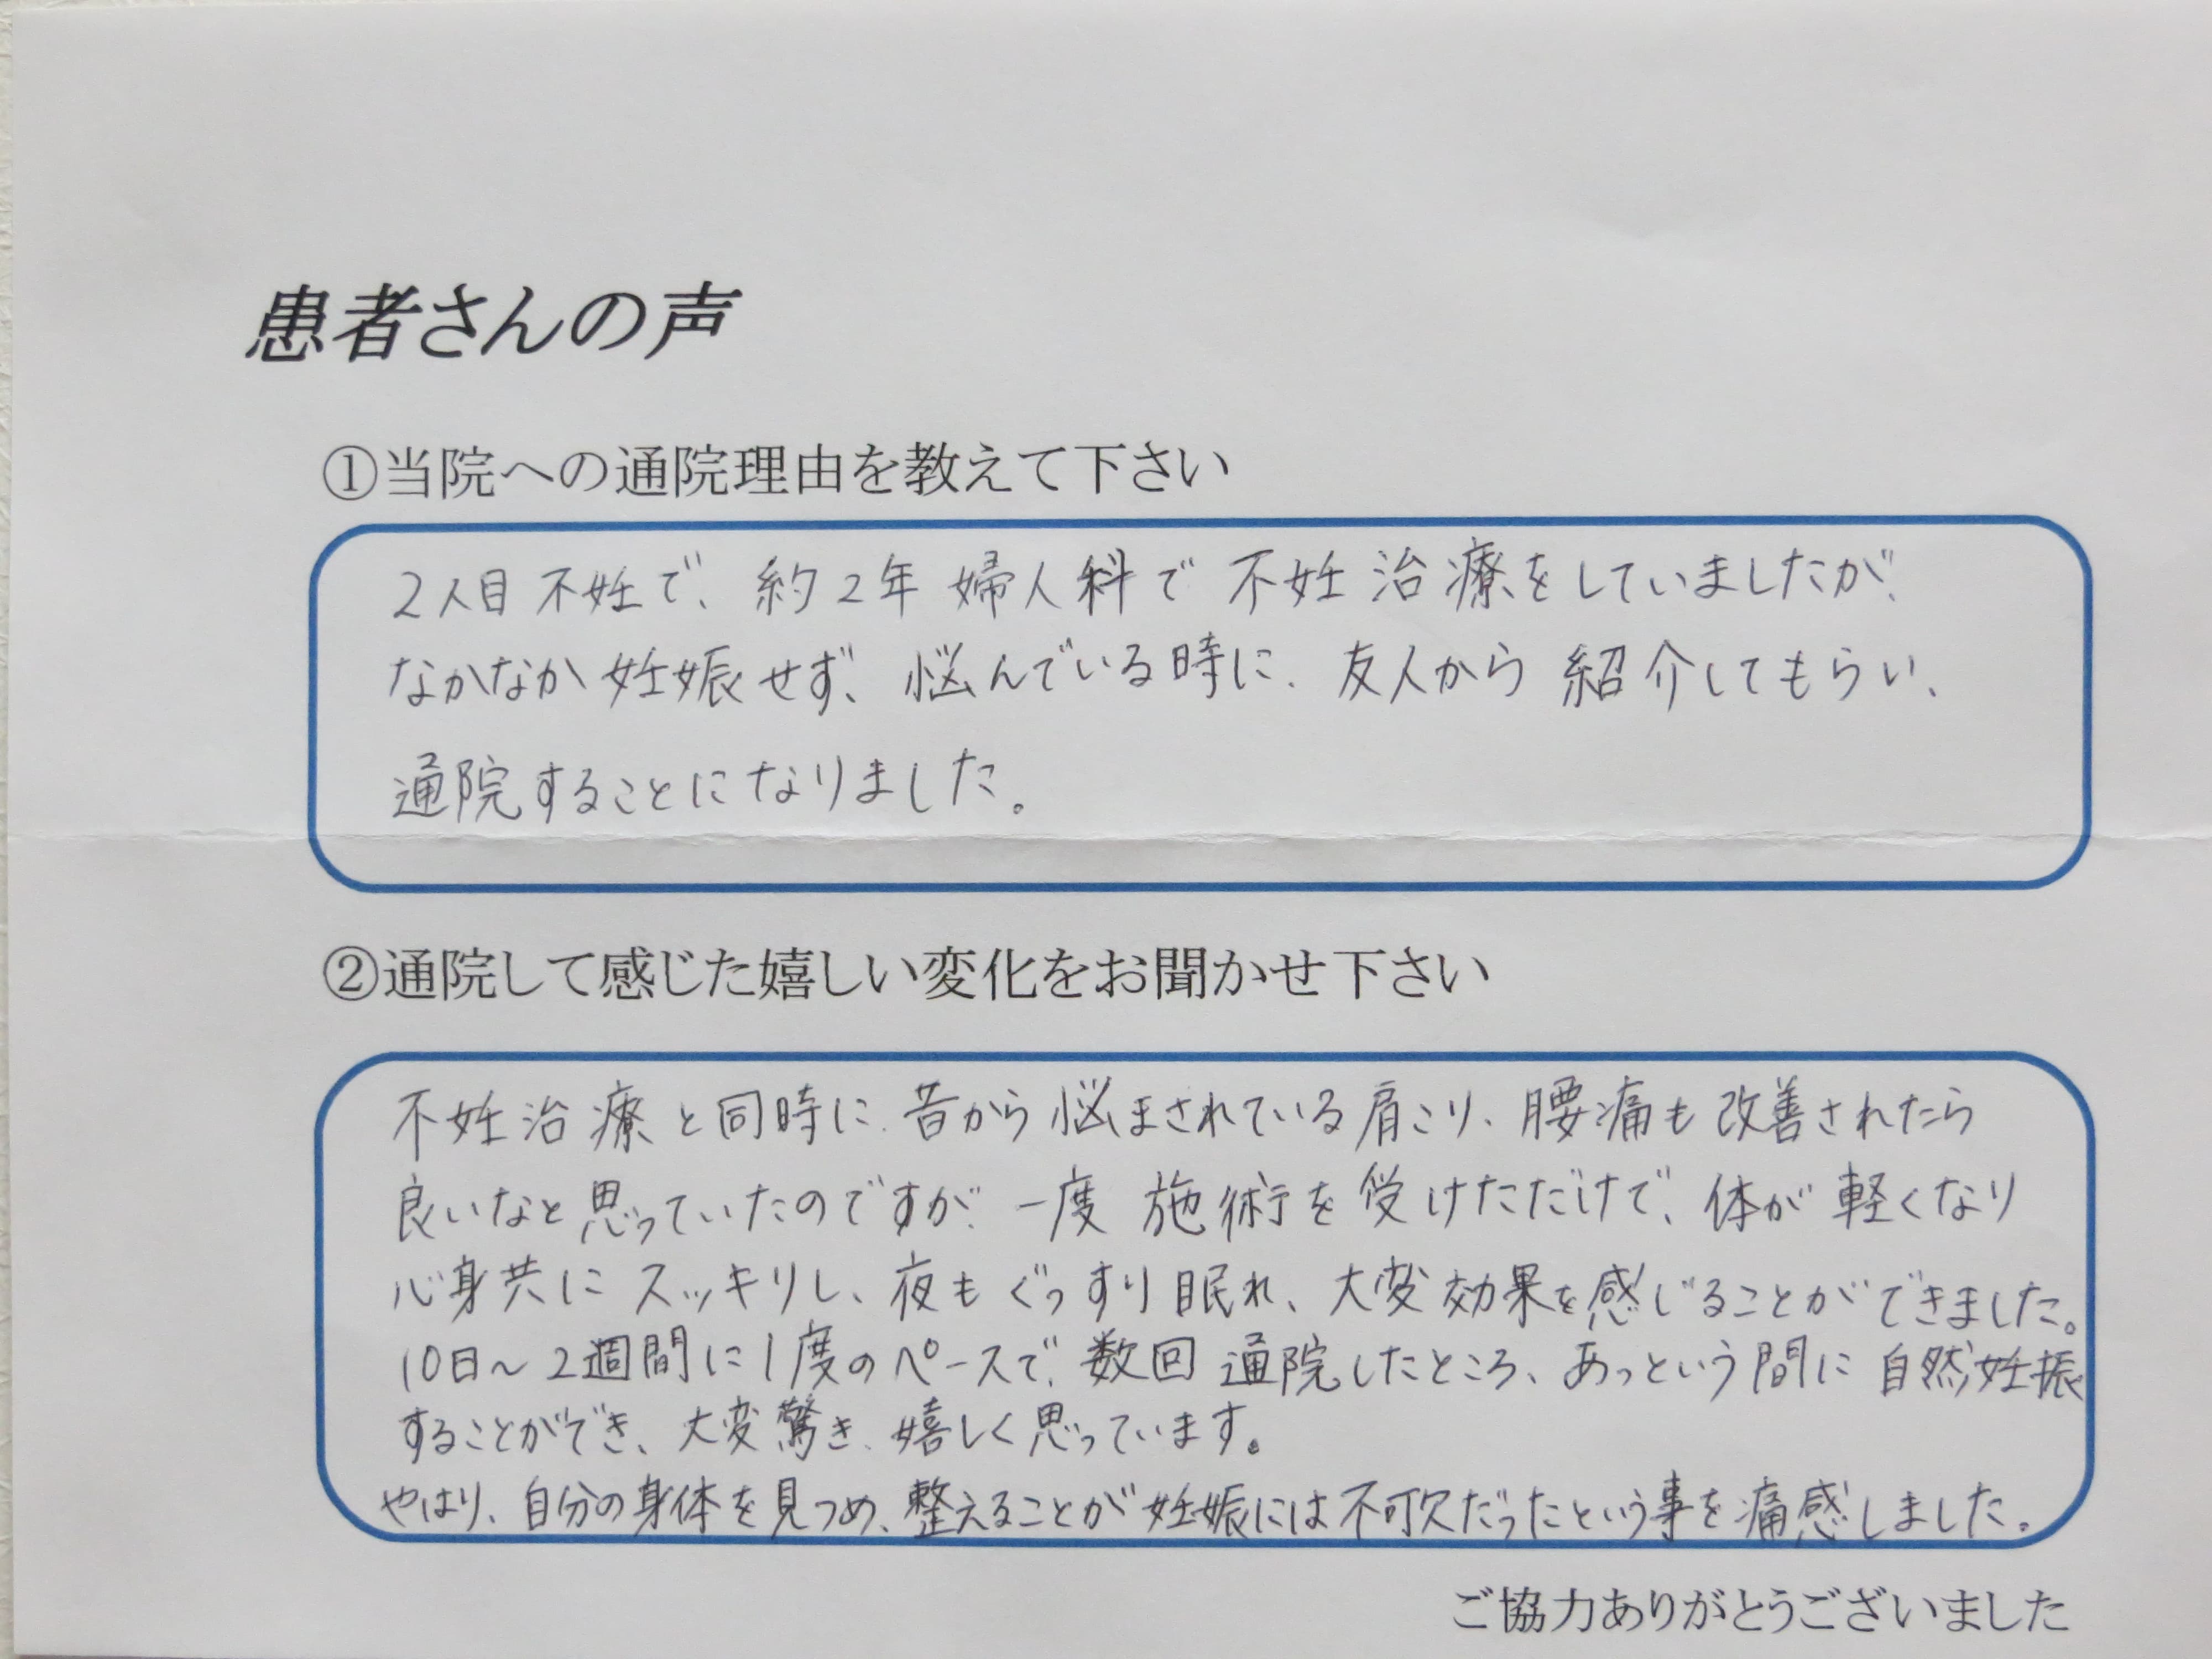 患者さんの声
①当院への通院理由を教えて下さい
2人目不妊で、約2年婦人科で不妊治療をしていましたが、
なかなか妊娠せず、悩んでいる時に、友人から紹介してもらい、
通院することになりました。
②通院して感じた嬉しい変化をお聞かせ下さい
不妊治療と同時に、昔から悩まされている肩こり、腰痛も改善されたら
良いなと思っていたのですが、一度施術を受けただけで、体が軽くなり
心身共にスッキリし、夜もぐっすり眠れ、大変効果を感じることができました。
10日～2週間に1度のペースで、数回通院したところ、あっという間に自然妊娠
することができ、大変驚き、嬉しく思っています。
やはり、自分の身体を見つめ、整えることが妊娠には不可欠だったという事を痛感しました。
ご協力ありがとうございました